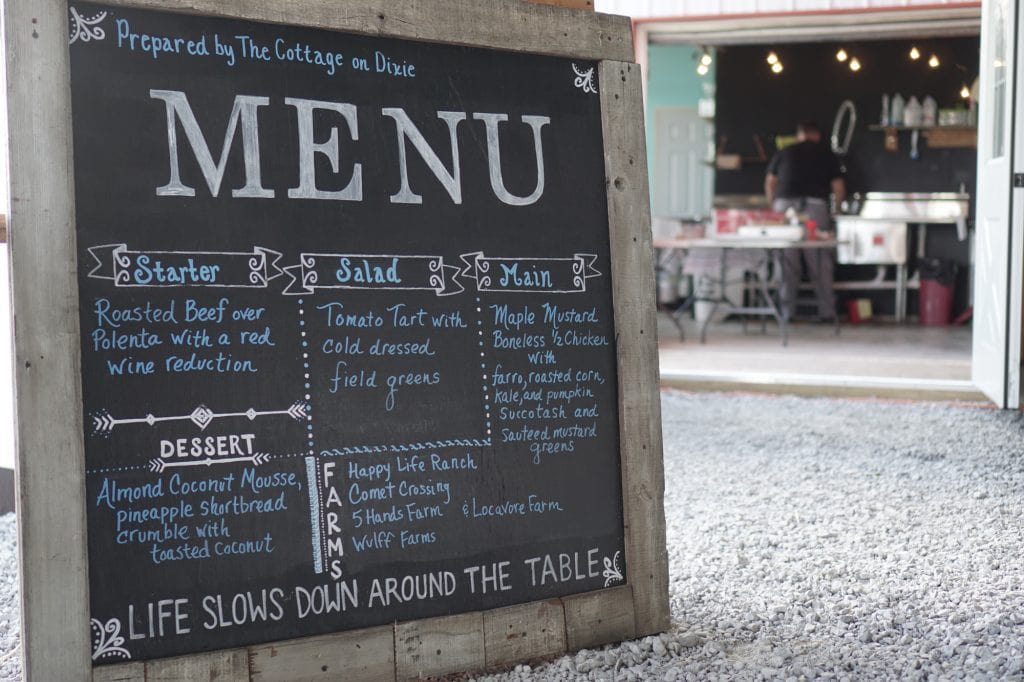 Prepared by The Cottage on Dixie
MENU
Starter
Roasted Beef over
Polenta with a red
wine reduction
Salad
Tomato Tart with
cold dressed
field greens
Main
Maple Mustard
Boneless ½ Chicken
with
farro, roasted corn,
kale, and pumpkin
succotash and
sauteed mustard
greens
DESSERT
Almond Coconut Mousse,
pineapple shortbread
crumble with
toasted coconut
FARMS
Happy Life Ranch
Comet Crossing
5 Hands Farm & Locavore Farm
Wulff Farms
LIFE SLOWS DOWN AROUND THE TABLE